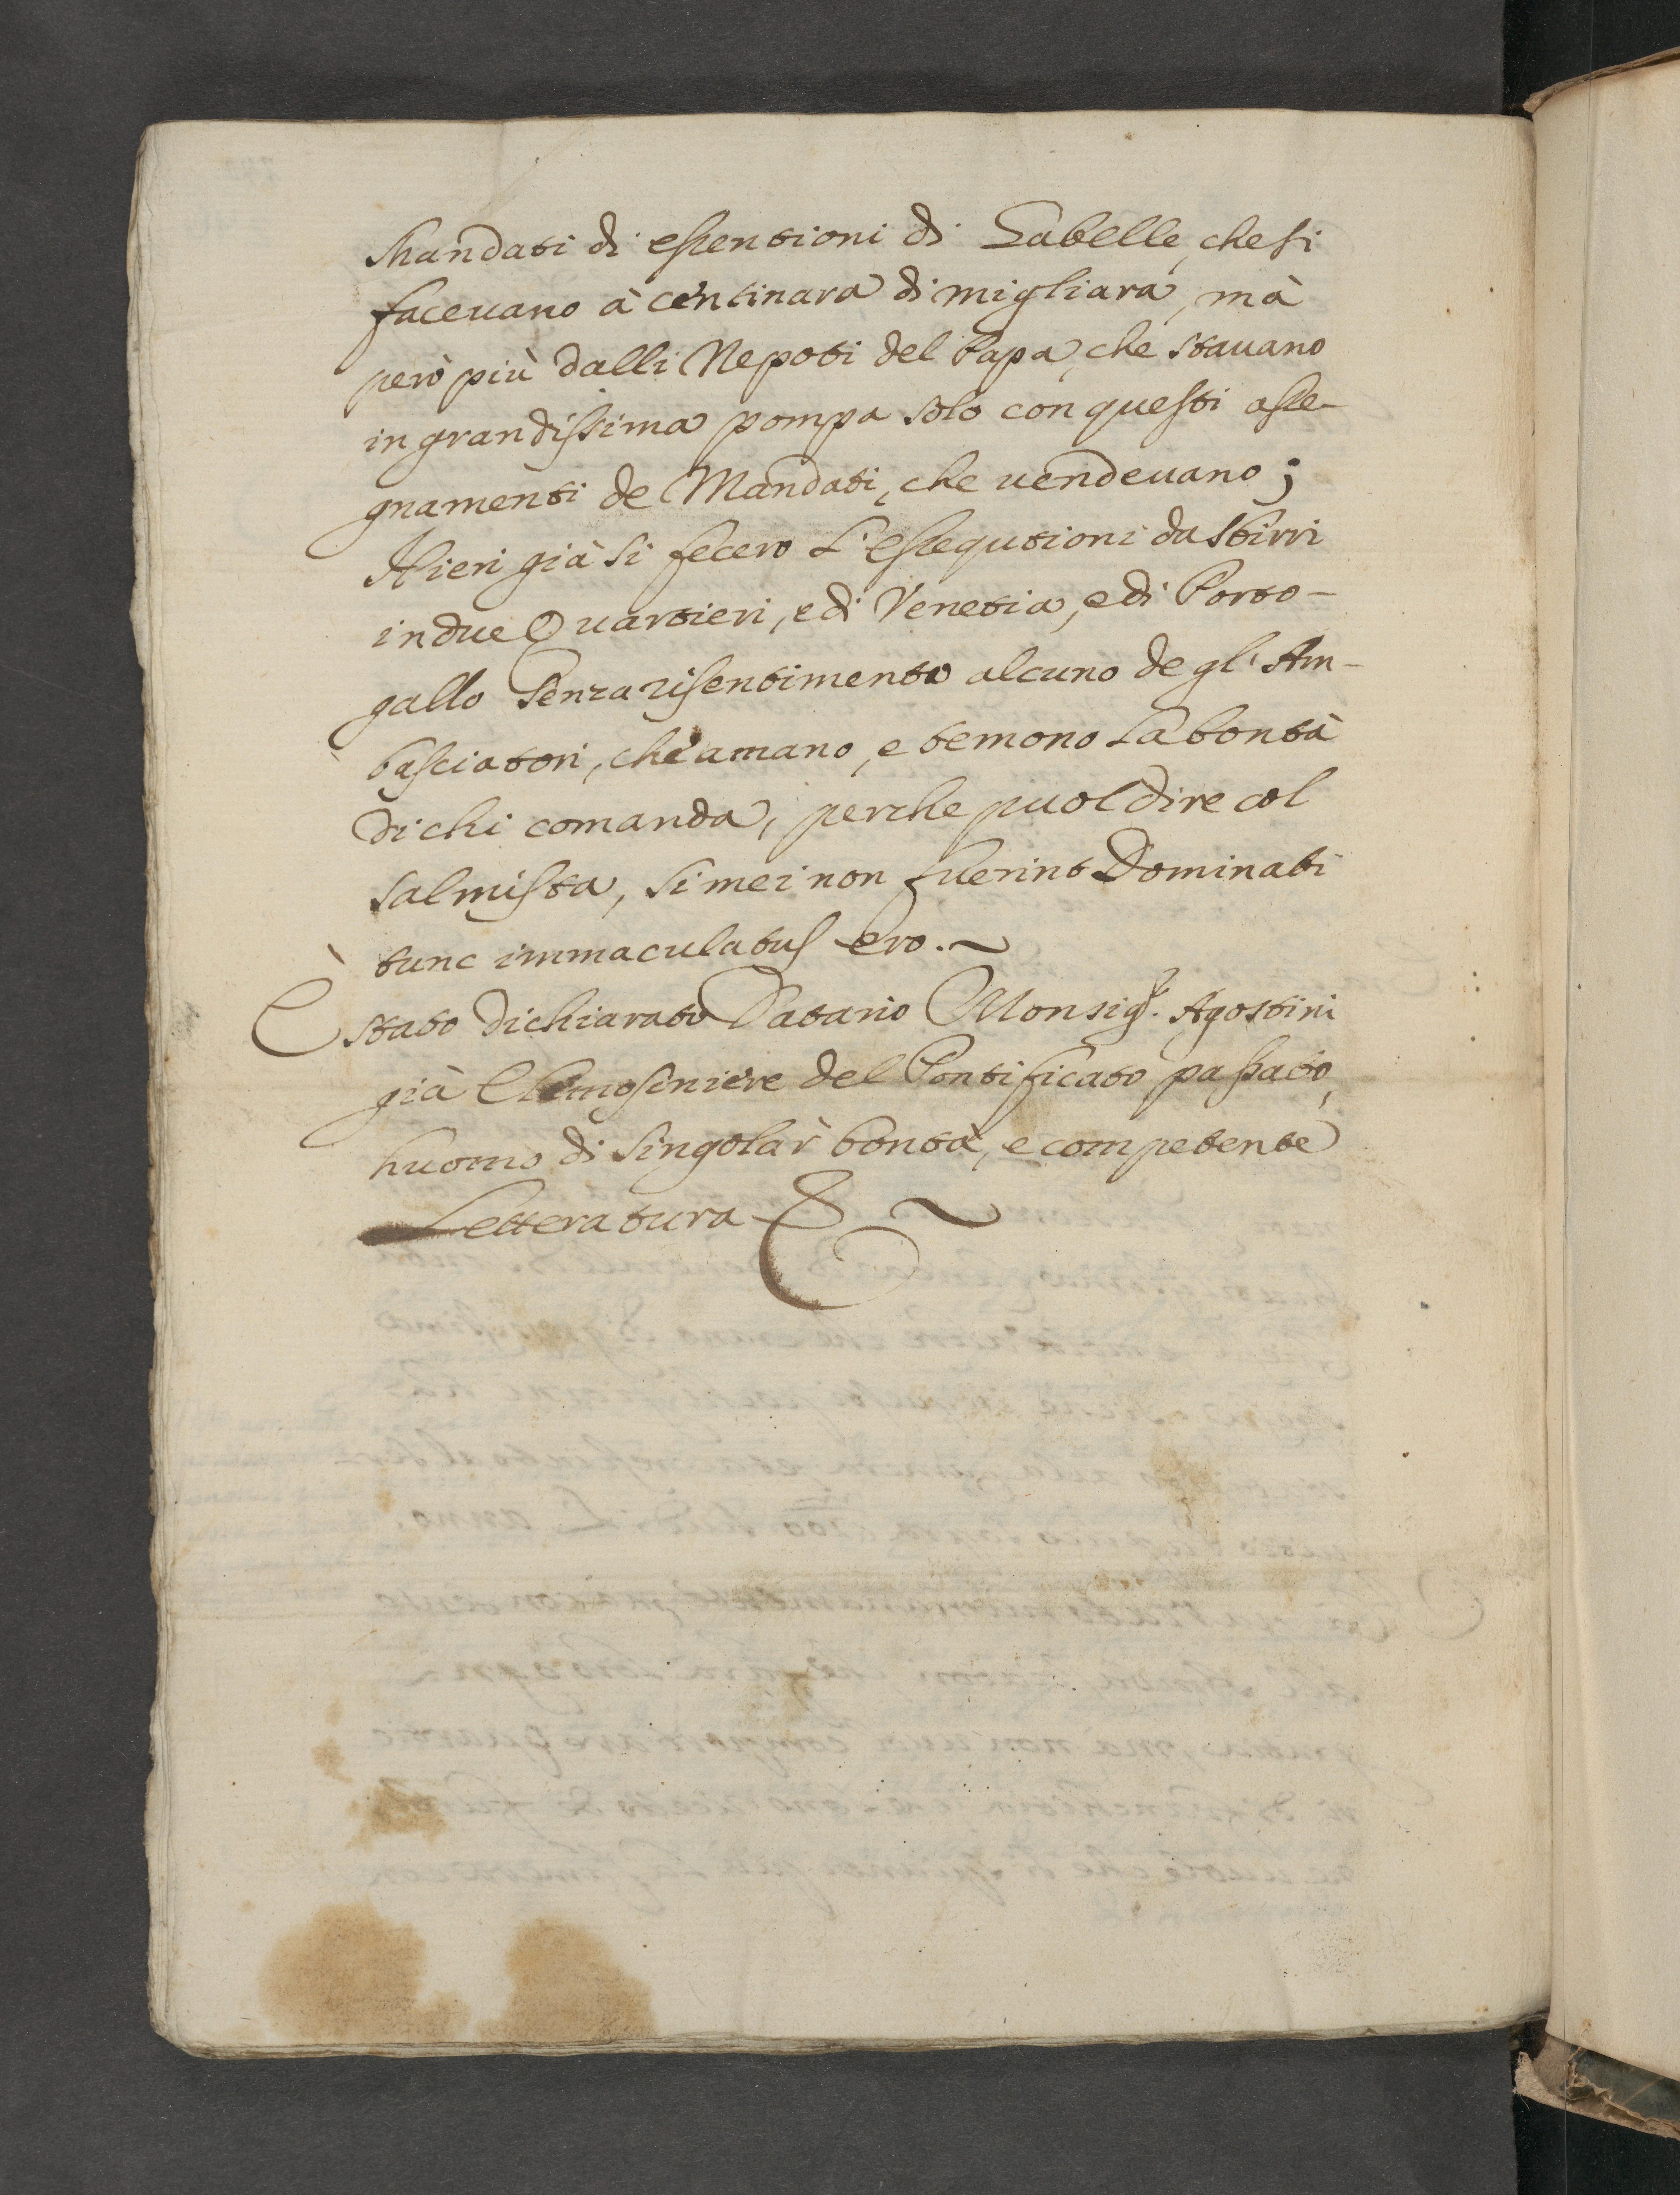 Mandati di essentioni di Gabelle, che si
faceuano à centinara di migliara, mà
però più dalli Nepoti del Papa, che stauano
in grandissima pompa solo con questi asse-
gnamenti de Mandati, che uendeuano;
Hieri già si fecero l'essequtioni da sbirri
in due Quartieri, e di Venetia, e di Porto-
gallo senza risentimento alcuno de gl' Am-
basciatori, che amano, e temono la bontà
di chi comanda, perche puol dire col
salmista, si mei non fuerint Dominati
tunc immaculatus ero. ~
È stato dichiarato Datario Monsigr. Agostini
già Elemosiniere del Pontificato passato,
huomo di singolar bontà, e competente
Letteratura & ~